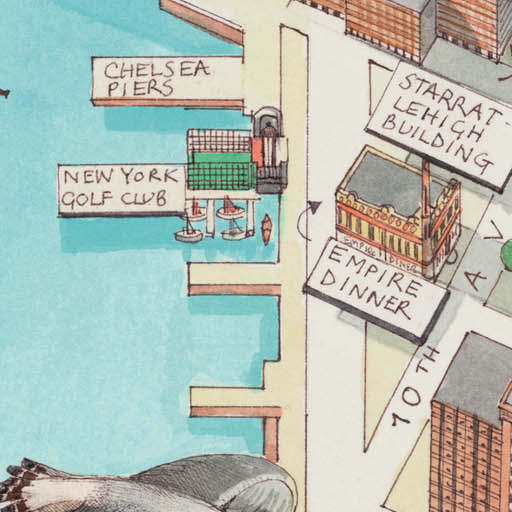 CHELSEA
PIERS
STARRAT-
LEHIGH
BUILDING
NEW YORK
GOLF CLUB
EMPIRE DINER
EMPIRE
DINNER
10TH AV